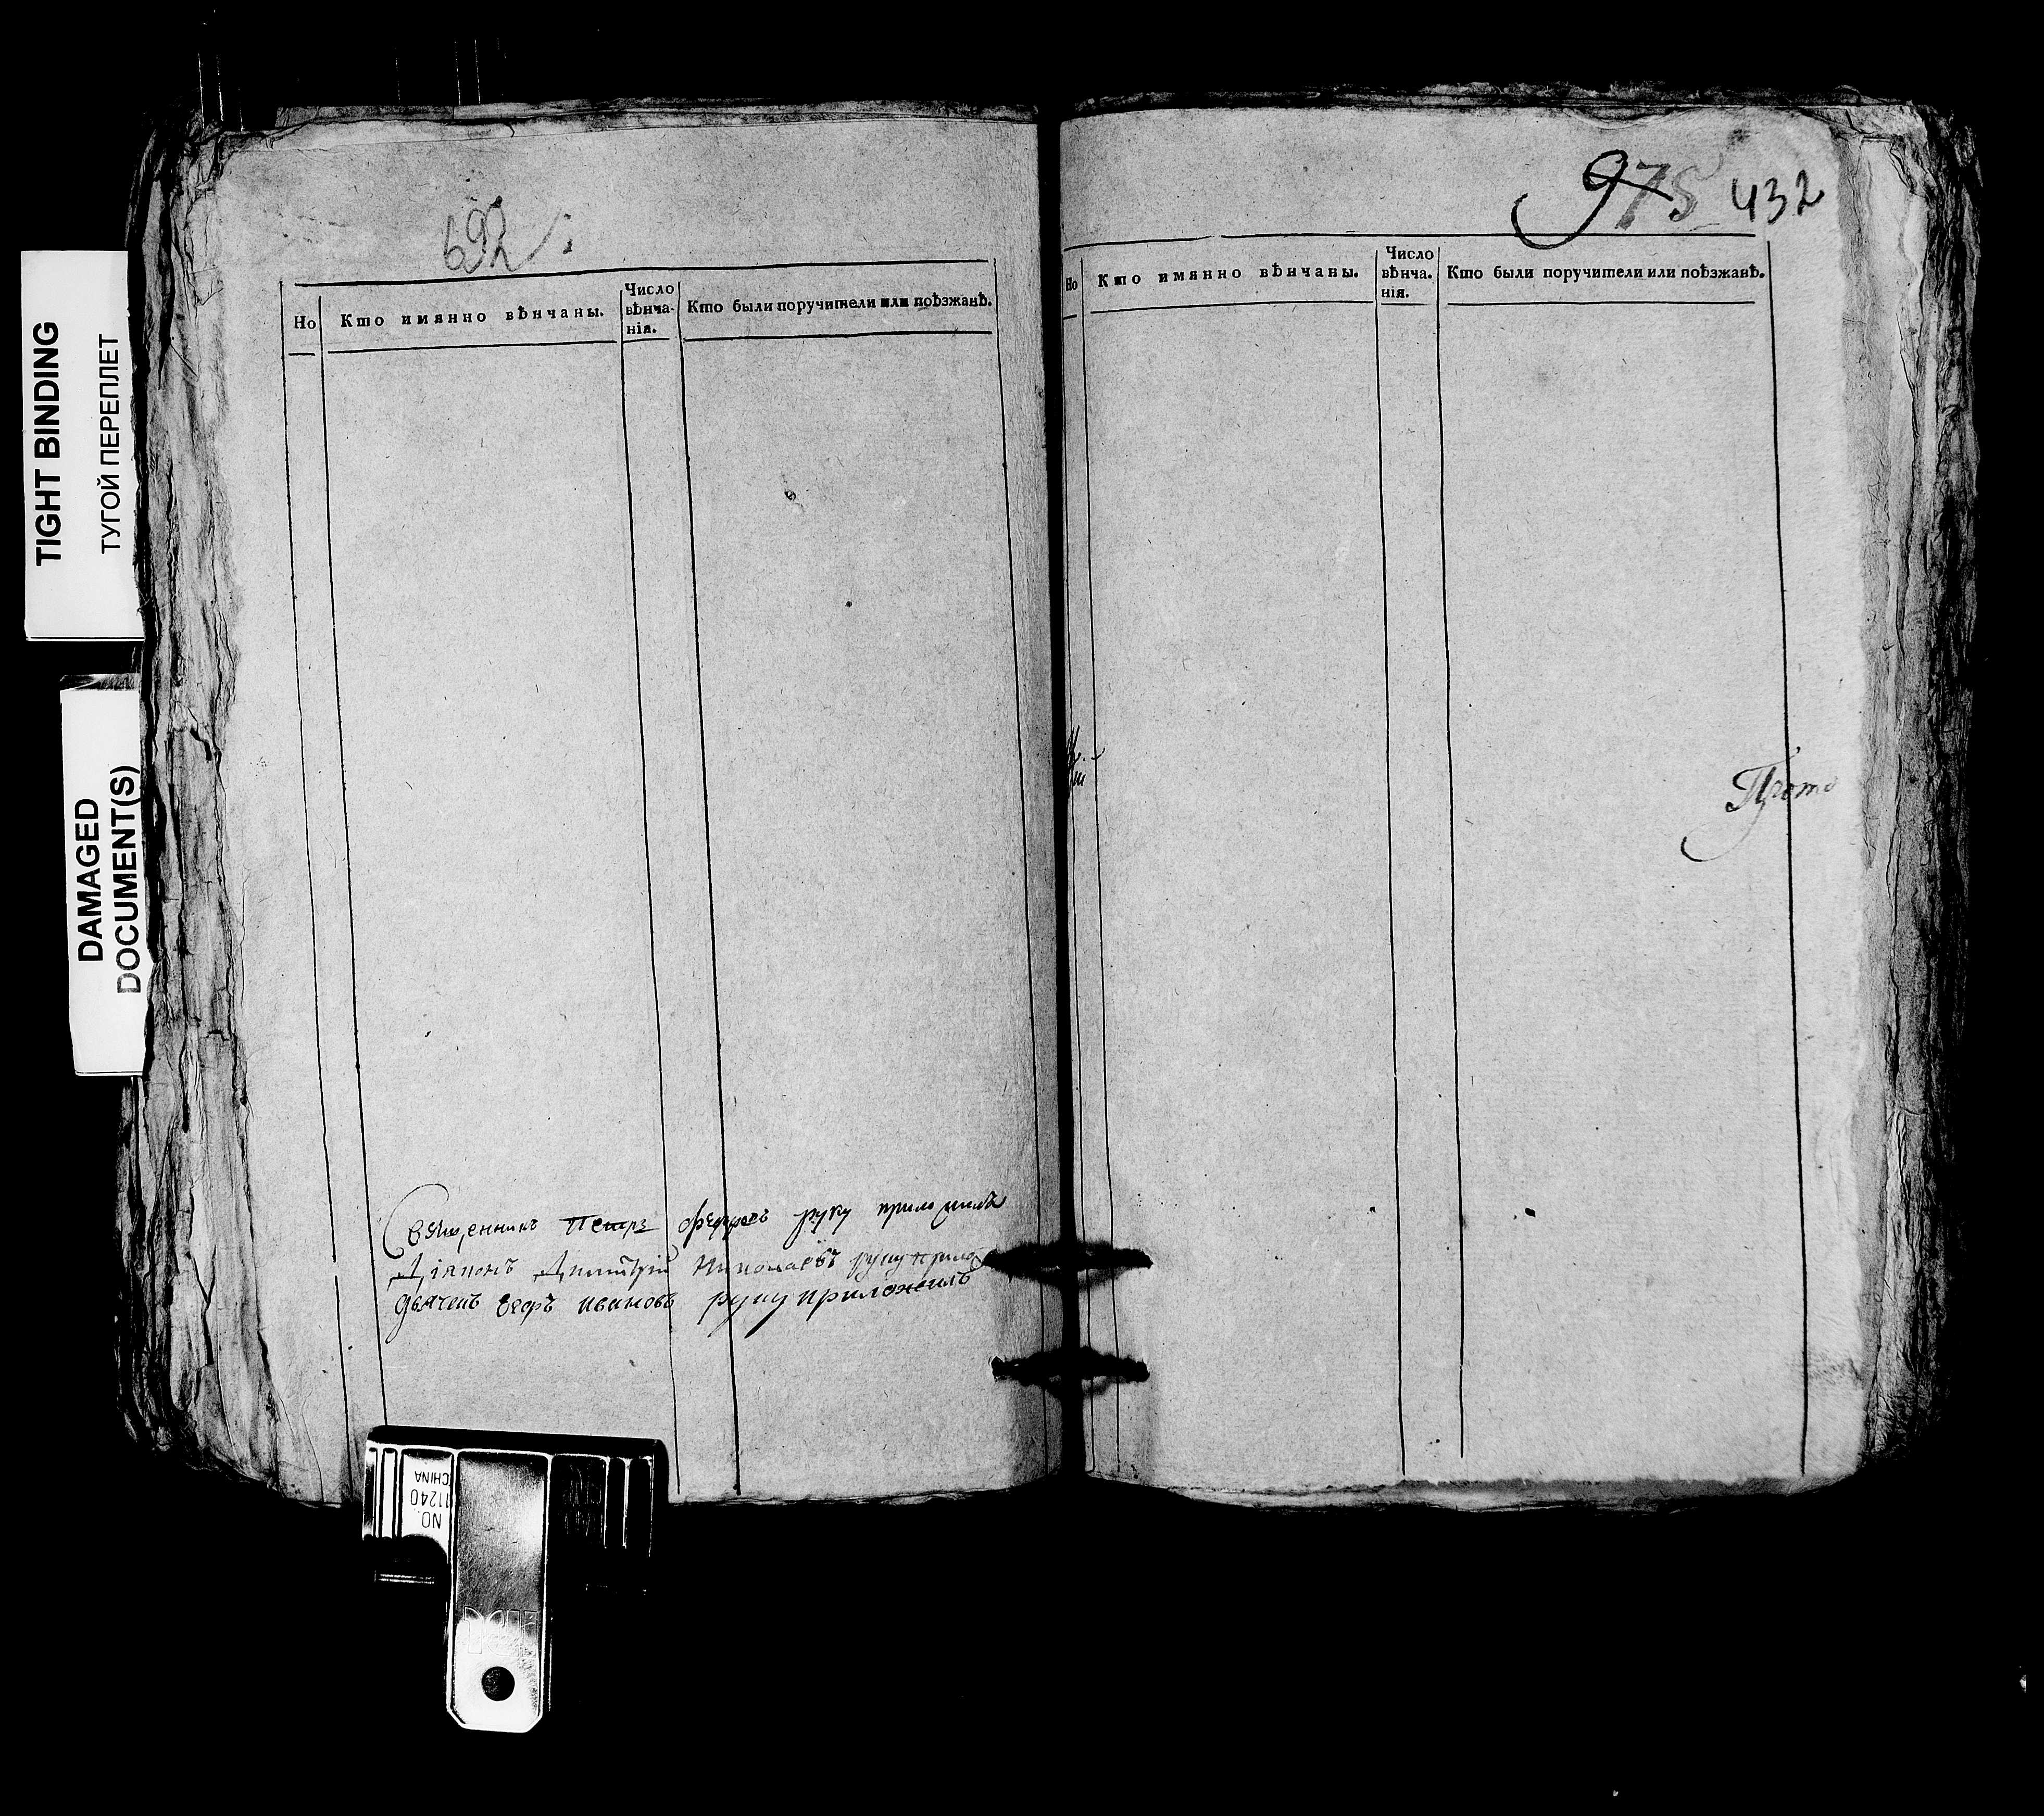 TIGHT BINDING
ТУГОЙ ПЕРЕПЛЕТ
DAMAGED
DOCUMENT(S)
692
Но
Кто имянно вѣнчаны.
Число
вѣнча-
нія.
Кто были поручители или поѣзжанѣ.
Священникъ Петръ руку приложилъ
Діаконъ Димитрій Николаевъ руку прило
дьячекъ ивановъ руку приложилъ
975 432
Но
Кто имянно вѣнчаны.
Число
вѣнча-
нія.
Кто были поручители или поѣзжанѣ.
Прото
NO.
11240
CHINA